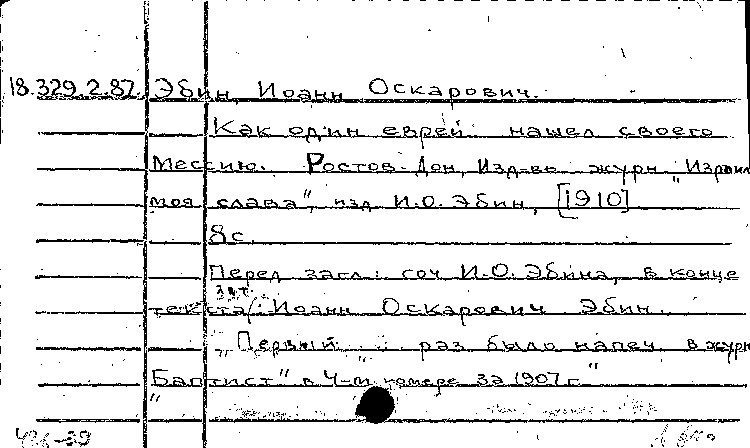 18.329.2.87. Эбин, Иоанн Оскарович.
Как один еврей нашел своего
Мессию. Ростов-Дон, Изд-во журн „Израил
моя слава", изд. И.О. Эбин, [1910]
8с.
Перед загл.: соч И.О. Эбина, в конце
текста: Иоанн Оскарович Эбин.
„Первый ... раз было напеч. в журн
„Баптист" в 4-м номере за 1907 г."